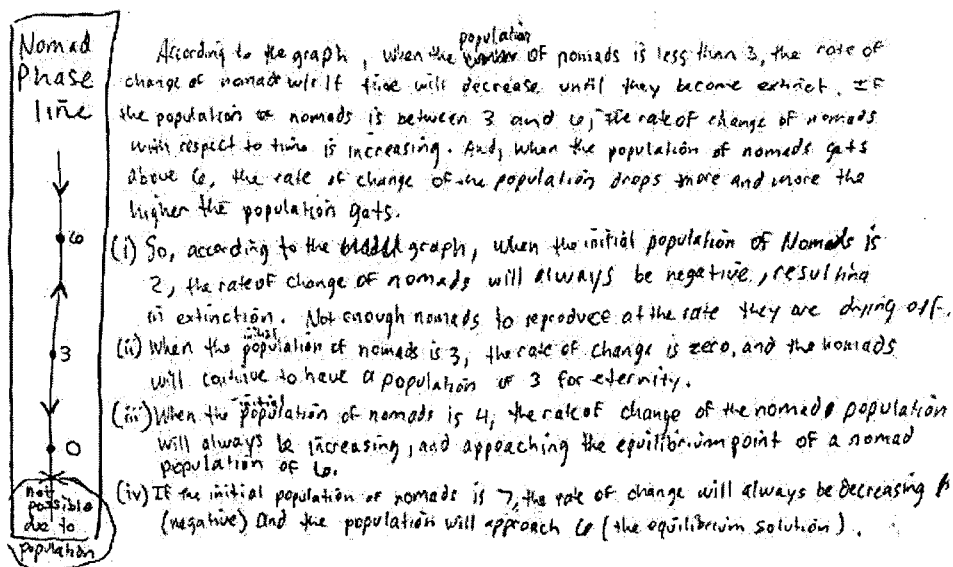 Nomad
Phase
line
6
3
0
not
possible
due to
population
According to the graph, when the population of nomads is less than 3, the rate of
change of nomads w/r/t time will decrease until they become extinct. If
the population of nomads is between 3 and 6, the rate of change of nomads
with respect to time is increasing. And, when the population of nomads gets
above 6, the rate of change of the population drops more and more the
higher the population gets.
(i) So, according to the graph, when the initial population of Nomads is
2, the rate of change of nomads will always be negative, resulting
in extinction. Not enough nomads to reproduce at the rate they are dying off.
(ii) When the initial population of nomads is 3, the rate of change is zero, and the nomads
will continue to have a population of 3 for eternity.
(iii) When the initial population of nomads is 4, the rate of change of the nomads population
will always be increasing, and approaching the equilibrium point of a nomad
population of 6.
(iv) If the initial population of nomads is 7, the rate of change will always be decreasing
(negative) and the population will approach 6 (the equilibrium solution).